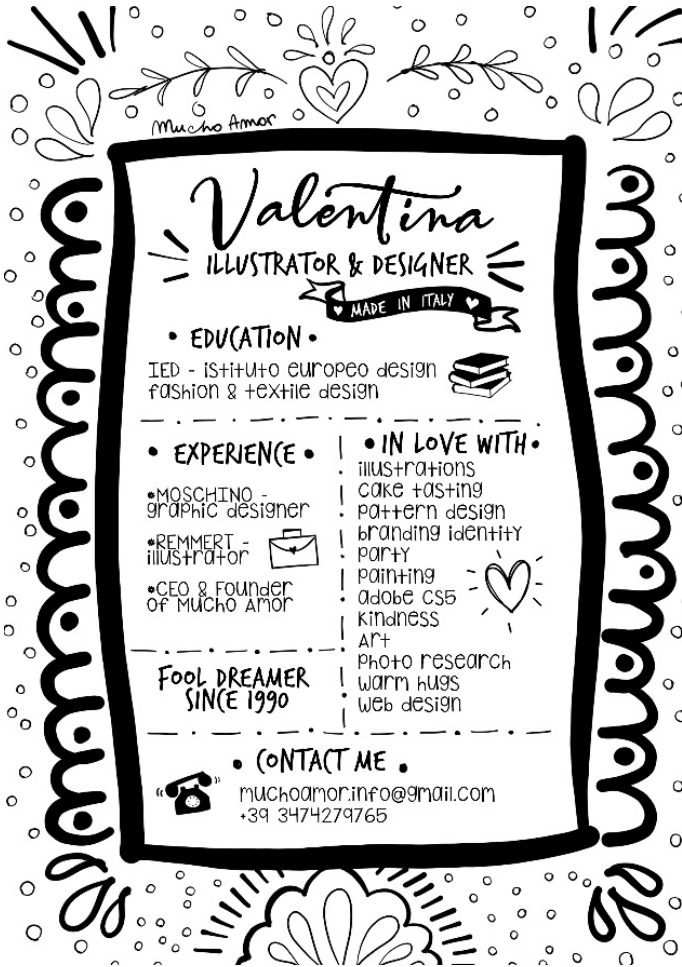 Mucho Amor
Valentina
ILLUSTRATOR & DESIGNER
MADE IN ITALY
• EDUCATION •
IED - istituto europeo design
fashion & textile design
• EXPERIENCE •
•MOSCHINO -
graphic designer
•REMMERT -
illustrator
•CEO & Founder
of Mucho Amor
FOOL DREAMER
SINCE 1990
• IN LOVE WITH •
illustrations
cake tasting
pattern design
branding identity
party
painting
adobe CS5
kindness
Art
photo research
warm hugs
web design
• CONTACT ME •
muchoamor.info@gmail.com
+39 3474279765